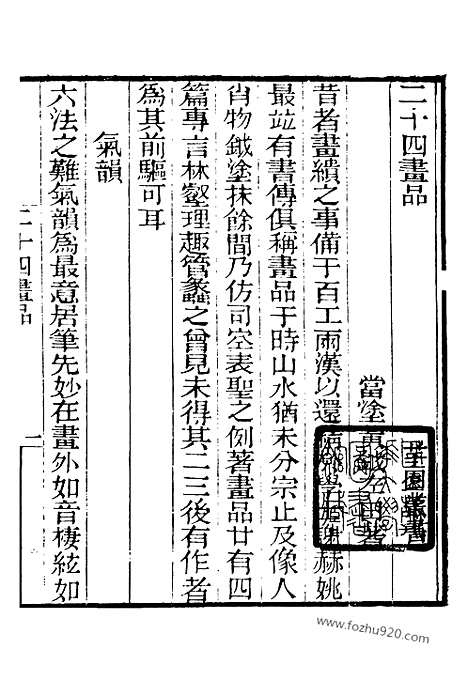 二十四畫品
當塗黃鉞左田著
昔者畫繢之事備于百工兩漢以還赫姚
最竝有書傳俱稱畫品于時山水猶未分宗止及像人
肖物鉞塗抹餘閒乃仿司空表聖之例著畫品廿有四
篇專言林壑理趣管蠡之曾見未得其二三後有作者
爲其前驅可耳
氣韻
六法之難氣韻爲最意居筆先妙在畫外如音棲絃如
二十四畫品
www.fozhu920.com